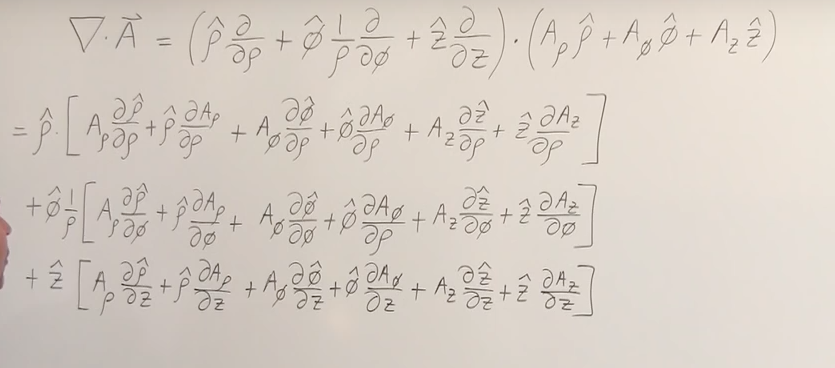 ∇·A⃗ = (ρ̂ ∂/∂ρ + φ̂ 1/ρ ∂/∂φ + ẑ ∂/∂z) · (A_ρ ρ̂ + A_φ φ̂ + A_z ẑ)
= ρ̂· [A_ρ ∂ρ̂/∂ρ + ρ̂ ∂A_ρ/∂ρ + A_φ ∂φ̂/∂ρ + φ̂ ∂A_φ/∂ρ + A_z ∂ẑ/∂ρ + ẑ ∂A_z/∂ρ]
+ φ̂ 1/ρ [A_ρ ∂ρ̂/∂φ + ρ̂ ∂A_ρ/∂φ + A_φ ∂φ̂/∂φ + φ̂ ∂A_φ/∂ρ + A_z ∂ẑ/∂φ + ẑ ∂A_z/∂φ]
+ ẑ [A_ρ ∂ρ̂/∂z + ρ̂ ∂A_ρ/∂z + A_φ ∂φ̂/∂z + φ̂ ∂A_φ/∂z + A_z ∂ẑ/∂z + ẑ ∂A_z/∂z]